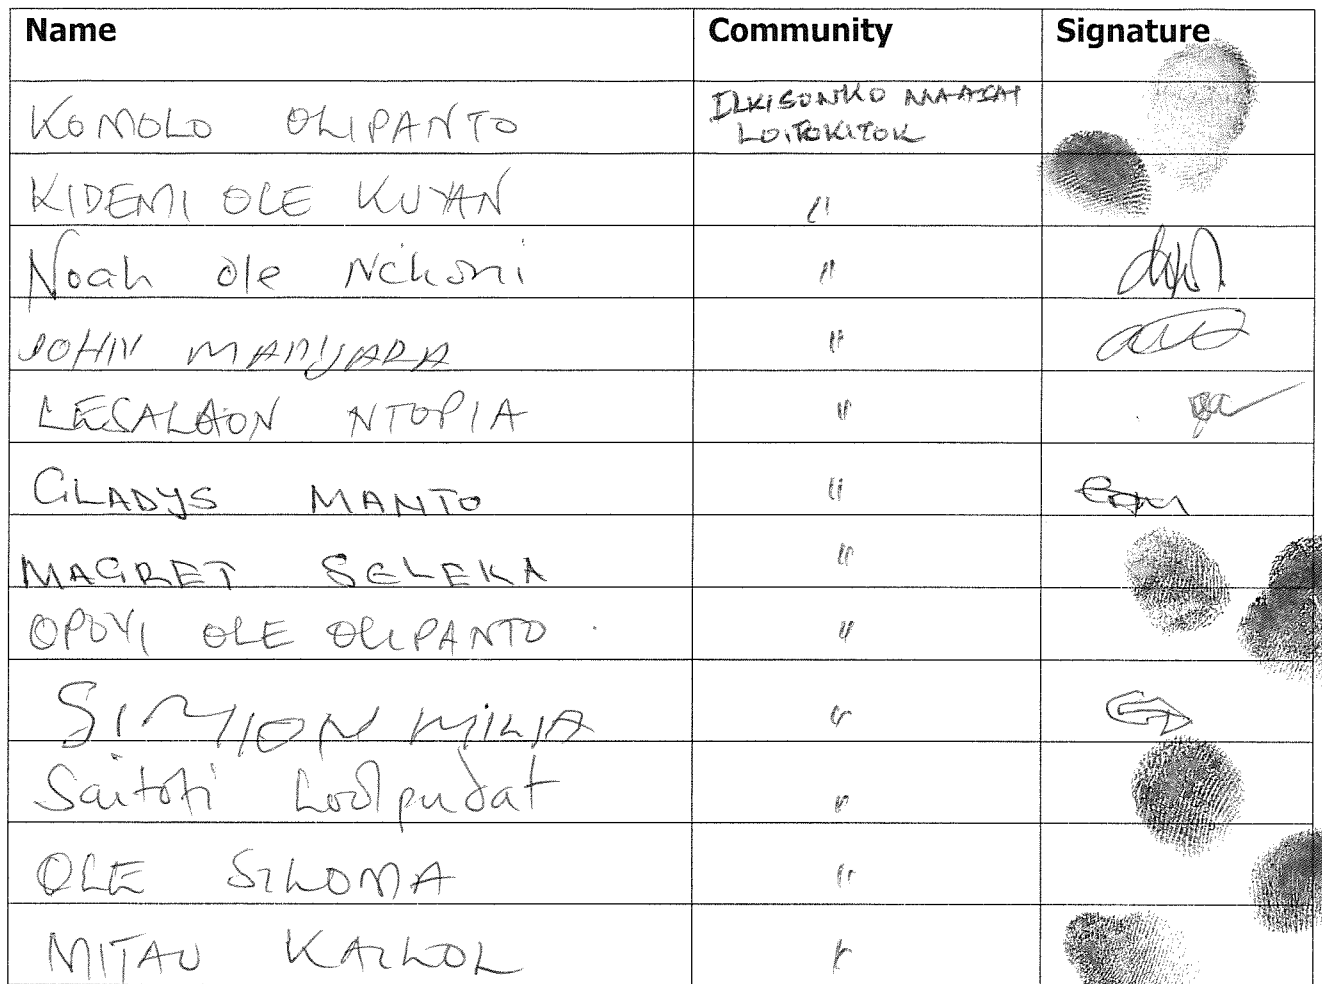 Name Community Signature
KOMOLO OLIPANTO ILKISONKO MAASAI
LOITOKITOK
KIDEMI OLE KUYAN "
Noah ole Nckoni "
JOHN MANYARA "
LESALAON NTOPIA "
GLADYS MANTO "
MAGRET SELEKA "
OPOYI OLE OLIPANTO "
SIMION MILIA "
Saitoti Loolpudat "
OLE SILOMA "
MITAU KAILOL "